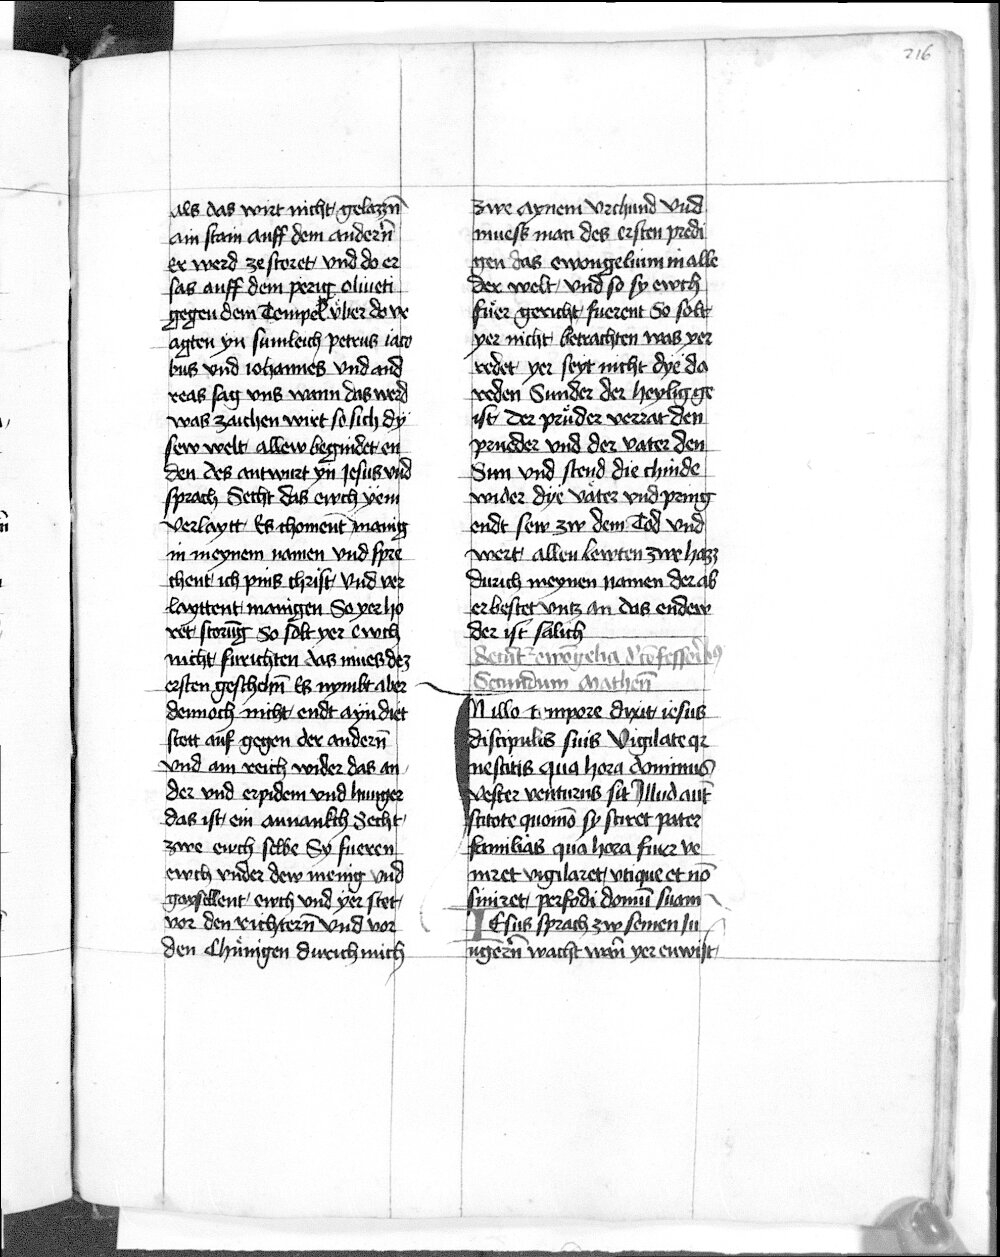 216
als das wirt nicht gelazzn̄
ain stain auff dem andern̄
Er werd ze storet· vnd do er
sas auff dem perig oliueti
gegen dem Tempel vͤber do vr
agten yn sumleich petrus iaco
bus vnd iohannes vnd and
reas sag vns wann das werd
was zaichen wirt so sich dy
sew welt allew begindet en
den des antwurt yn Jesus vnd
sprach Secht das ewch yem
verlaytt Es choment manig
in meynem namen vnd spre
chent· ich pins christ· vnd ver
layttent· manigen So yer ho
ret· storūg So solt yer ewch
nicht furichten das mues dez
ersten geschehn̄ Es nymbt aber
dennoch nicht· endt ayn diet
stett auf gegen der andern̄
vnd ain reich wider das an
der vnd erpidem vnd hunger
das ist· ein anuankch Secht·
zwe ewch selbe Sy fueren
ewch vnder dew menig vnd
gaysellent· ewch vnd yer stet·
vor den richtern̄ vnd vor
den Chuͤnigen durich mich
zwe aynem vrchund vnd
muesk man des ersten predi
gen das ewongelium in alle
der welt· vnd so sy ewch
fuͤer gericht· fuerent So solt·
yer nicht· betrachten was yer
redet· yer seyt nicht dye do
reden Sunder der heylig ge
ist· Der pruͤder verrat den
prueder vnd der vater den
Sun vnd stend die chinde
wider dye vaͤter vnd pring
endt sew zw dem Tod vnd
wert· allen lewten zwe hazz
durich meynen namen der ab
er bestet vntz an das endew
der ist salich
Secundum Matheū
N illo tempore dixit iesus
discipulis suis Vigilate qr
nescitis qua hora dominus
vester venturus sit Illud aut̄
scitote quoniō sy sciret pater
familias qua hora fuer ve
niret vigilaret· vtique et nō
siniret· perfodi domū suam
IEsus sprach zw seinen Iu
ngern̄ wacht wan̄ yer enwist·